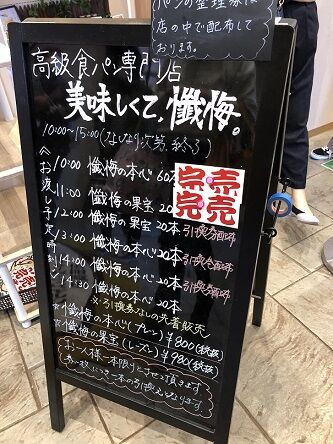 パンの整理券は
店の中で配布して
おります。
高級食パン専門店
美味しくて、懺悔。
10:00~15:00(なくなり次第終了)
へお渡し予定時刻〉
10:00 懺悔の本心 60本
完売
11:00 懺悔の果宝 20本
完売
12:00 懺悔の果宝 20本 引換券配布
13:00 懺悔の本心 20本 引換券配布
14:00 懺悔の本心 20本 引換券配布
14:30 懺悔の本心 20本
※引換券なしの先着販売
※懺悔の本心(プレーン)¥800(税抜)
※懺悔の果宝(レーズン)¥980(税抜)
お一人様一本限りとさせて頂きます
券一枚につき一本の引換えとなります